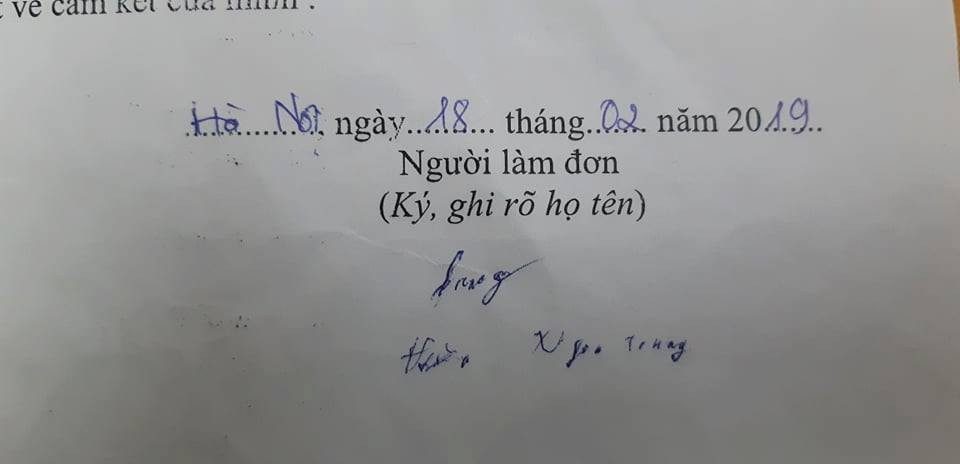 về cam kết của mình .
Hà Nội, ngày 18 tháng 02 năm 2019
Người làm đơn
(Ký, ghi rõ họ tên)